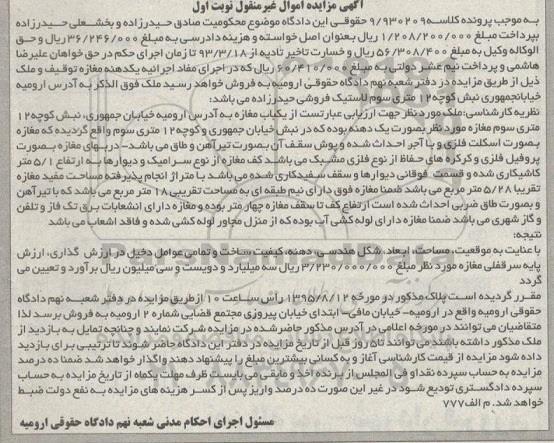 آگهی مزایده اموال غیرمنقول نوبت اول
به موجب پرونده کلاسه ۹/۹۳۰۲۰۹ حقوقی این دادگاه موضوع محکومیت صادق حیدرزاده و بخشعلی حیدرزاده
بپرداخت مبلغ ۱/۲۰۸/۲۰۰/۰۰۰ ریال بعنوان اصل خواسته و هزینه دادرسی به مبلغ ۳۶/۲۴۶/۰۰۰ ریال و حق
الوکاله وکیل به مبلغ ۵۶/۳۰۸/۴۰۰ ریال و خسارت تاخیر تادیه از ۹۳/۳/۱۸ تا زمان اجرای حکم در حق خواهان علیرضا
هاشمی و پرداخت نیم عشر دولتی به مبلغ ۶۰/۴۱۰/۰۰۰ ریال که در اجرای مفاد اجرائیه یکدهنه مغازه توقیف و ملک
ذیل از طریق مزایده در دفتر شعبه نهم دادگاه حقوقی ارومیه به فروش خواهد رسید ملک فوق الذکر به آدرس ارومیه
خیابانجمهوری نبش کوچه ۱۲ متری سوم لاستیک فروشی حیدرزاده می باشد:
نظریه کارشناسی: ملک مورد نظر جهت ارزیابی عبارتست از یکباب مغازه به آدرس ارومیه خیابان جمهوری، نبش کوچه ۱۲
متری سوم مغازه مورد نظر بصورت یک دهنه بوده که در نبش خیابان جمهوری و کوچه ۱۲ متری سوم واقع گردیده که مغازه
بصورت اسکلت فلزی و با آجر احداث شده و پوشش سقف آن بصورت تیرآهن و طاق می باشد- دربهای مغازه بصورت
پروفیل فلزی و کرکره های حفاظ از نوع فلزی مشبک می باشد کف مغازه از نوع سرامیک و دیوارها به ارتفاع ۱/۵ متر
کاشیکاری شده و قسمت فوقانی دیوارها و سقف سفیدکاری شده می باشد با متراژ انجام پذیرفته مساحت مفید مغازه
تقریبا ۵/۲۸ متر مربع می باشد ضمنا مغازه فوق دارای نیم طبقه ای به مساحت تقریبی ۱۸ متر مربع می باشد که با تیرآهن
و بصورت طاق ضربی احداث شده است ارتفاع کف تا سقف مغازه چهار متر بوده و مغازه دارای انشعابات برق تک فاز و تلفن
و گاز شهری می باشد ضمنا مغازه دارای لوله کشی آب بوده که از منزل مجاور لوله کشی شده و فاقد اشعاب می باشد
نتیجه:
با عنایت به موقعیت، مساحت، ابعاد، شکل هندسی، دهنه، کیفیت ساخت و تمامی عوامل دخیل در ارزش گذاری، ارزش
پایه سرقفلی مغازه مورد نظر مبلغ ۳/۲۳۰/۰۰۰/۰۰۰ ریال سه میلیارد و دویست و سی میلیون ریال برآورد و تعیین می
گردد
مقرر گردیده است پلاک مذکور در مورخه ۱۳۹۵/۸/۱۲ رأس ساعت ۱۰ از طریق مزایده در دفتر شعبه نهم دادگاه
حقوقی ارومیه واقع در ارومیه- خیابان مافی- ابتدای خیابان پیروزی مجتمع قضایی شماره ۲ ارومیه به فروش برسد لذا
متقاضیان می توانند در مورخه اعلامی در آدرس مذکور حاضر شده در مزایده شرکت نمایند و چنانچه تمایل به بازدید از
ملک مذکور داشته باشند می توانند تا ۵ روز قبل از تاریخ مزایده در دفتر این دادگاه حاضر شوند تا ترتیبی برای بازدید
داده شود مزایده از قیمت کارشناسی آغاز و به کسانی بیشترین مبلغ را پیشنهاد دهند واگذار خواهد شد ضمنا ده درصد
مزایده به حساب سپرده نقدا و فی المجلس از برنده اخذ و مابقی می بایست ظرف مهلت یکماه از تاریخ مزایده به حساب
سپرده دادگستری تودیع شود در غیر این صورت ده درصد واریز پس از کسر هزینه های مزایده به نفع دولت ضبط
خواهد شد. م الف ۷۷۷
مسئول اجرای احکام مدنی شعبه نهم دادگاه حقوقی ارومیه